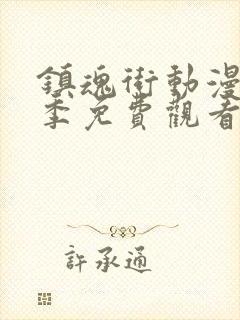 鎮魂街動漫
季免費觀看
許承通